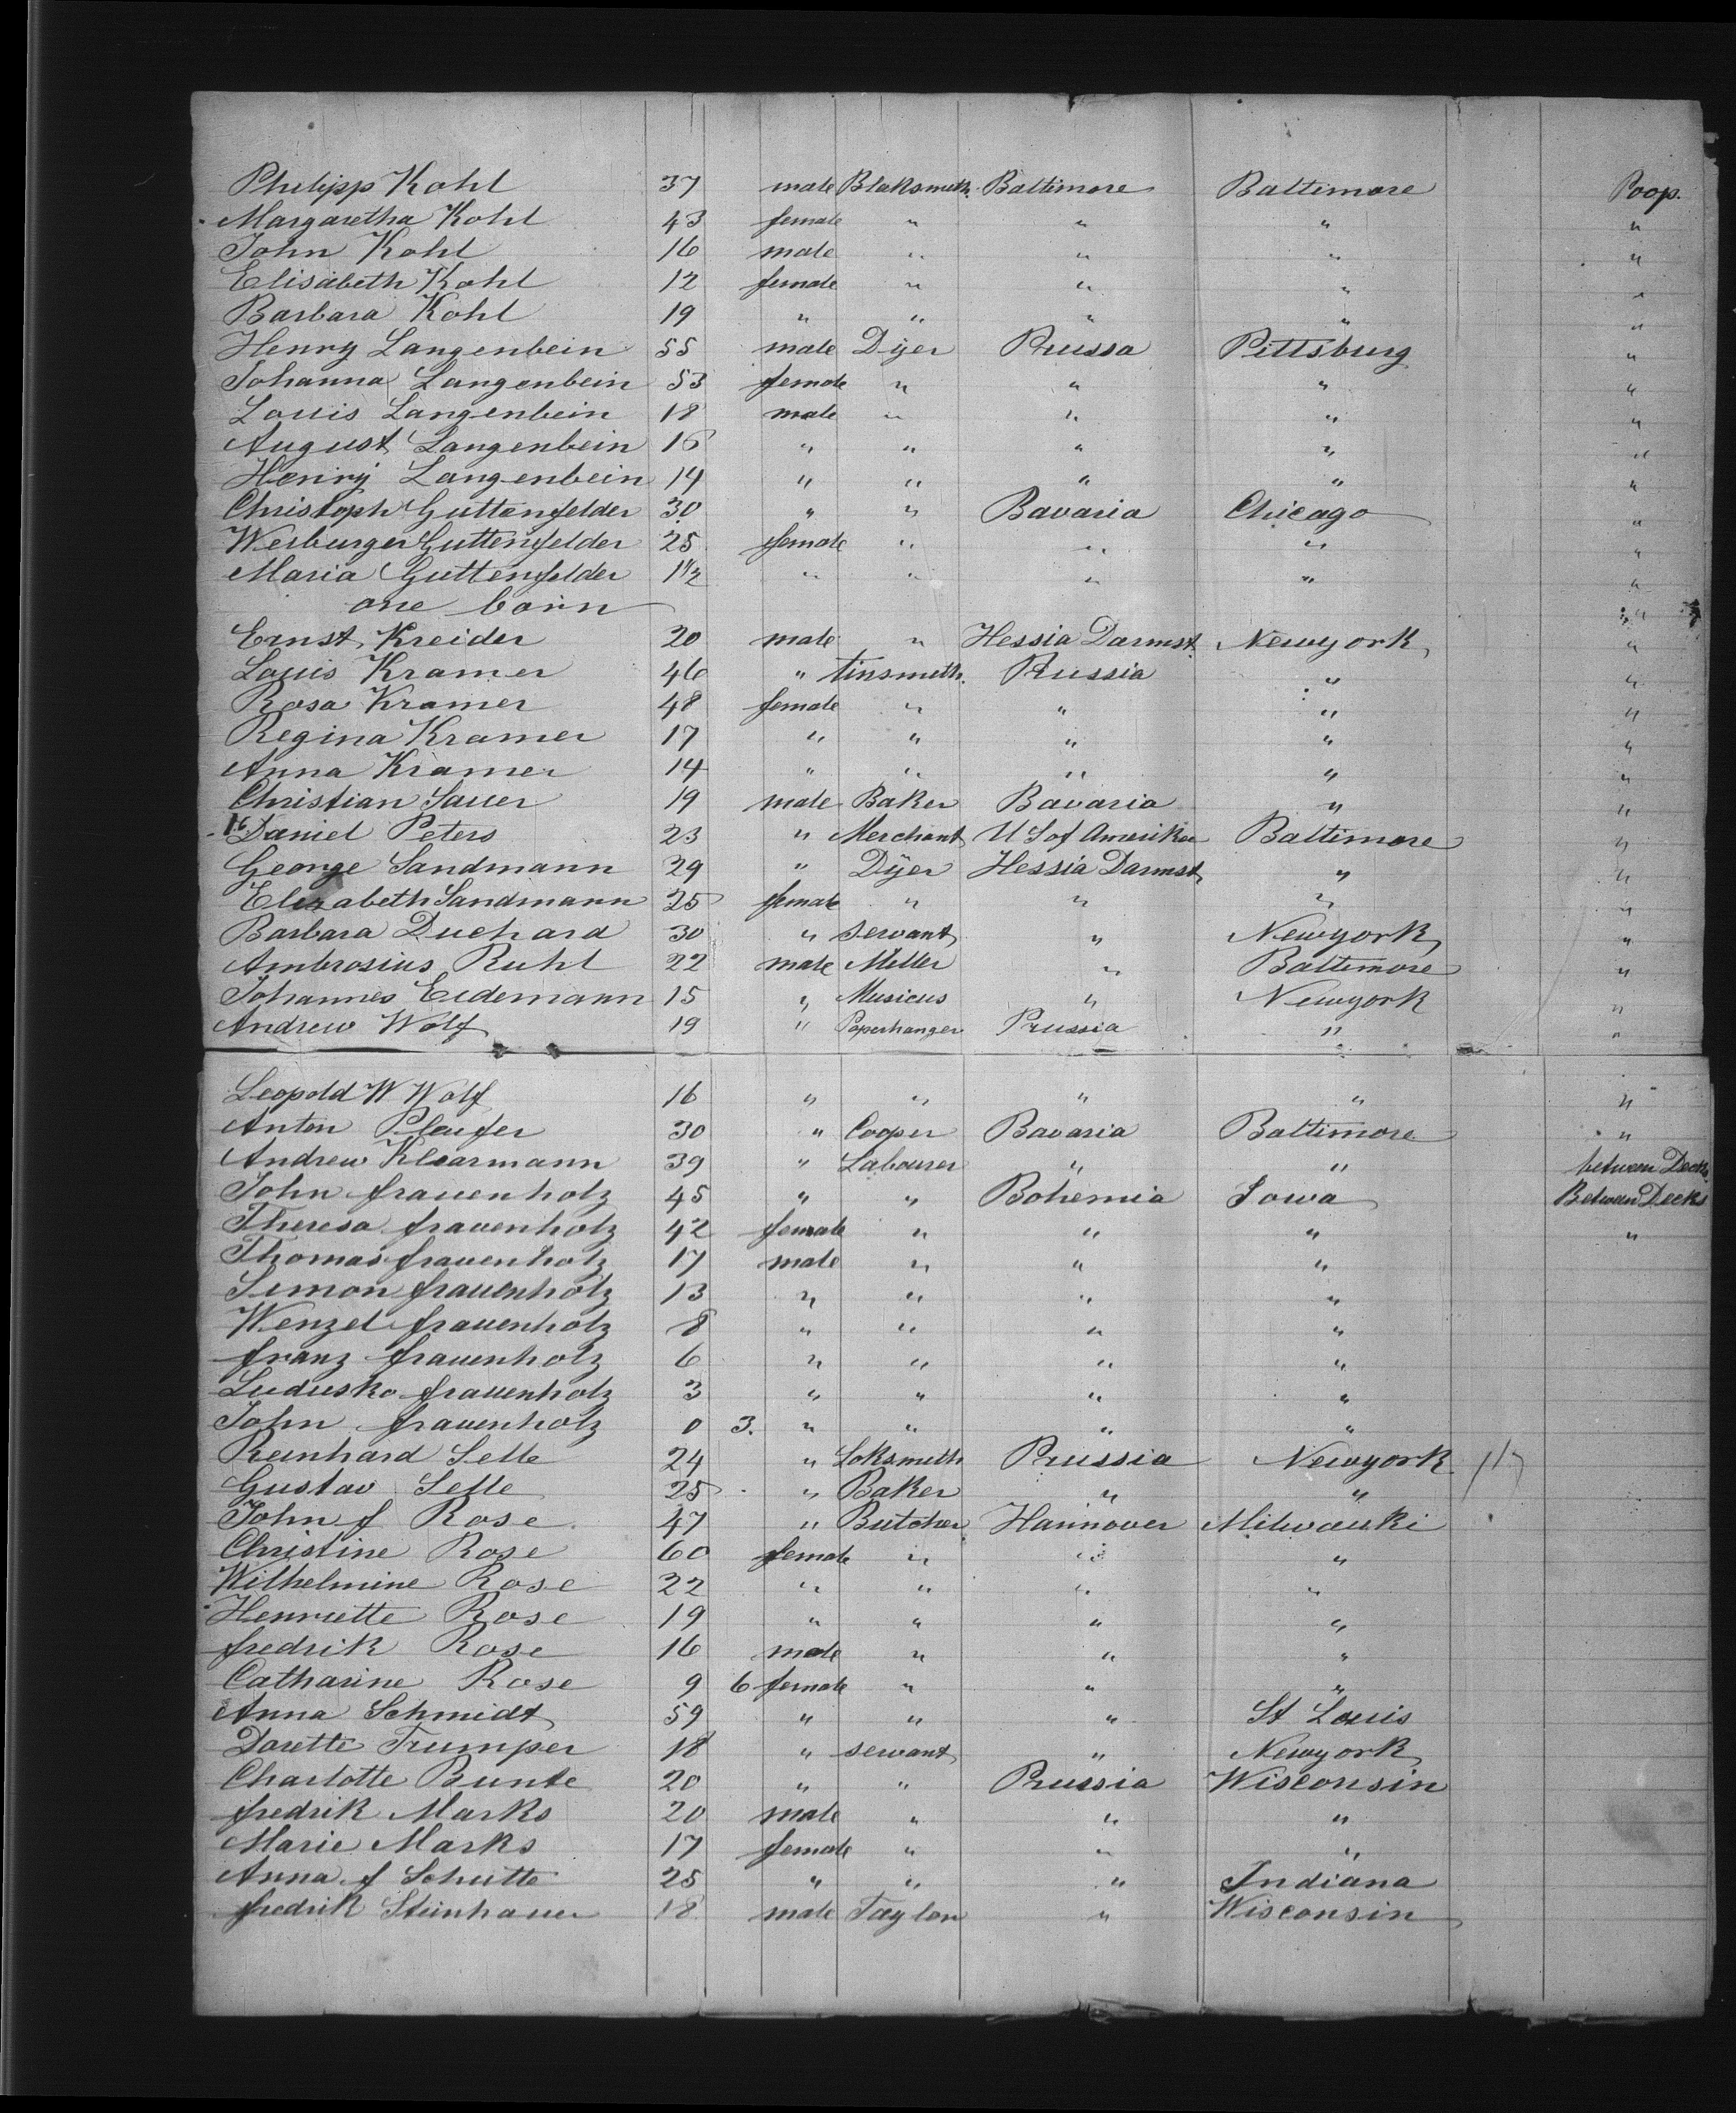 Philipp Kohl 37 male Blaksmith. Baltimore Baltimore Poop.
Margaretha Kohl 43 female " " " "
John Kohl 16 male " " " "
Elisabeth Kohl 12 female " " " "
Barbara Kohl 19 " " " " "
Henry Langenbein 55 male Dyer Prussa Pittsburg "
Johanna Langenbein 53 female " " " "
Louis Langenbein 18 male " " " "
August Langenbein 16 " " " " "
Henry Langenbein 14 " " " " "
Christoph Guttenfelder 30 " " Bavaria Chicago "
Werburger Guttenfelder 25 female " " " "
Maria Guttenfelder 1 1/2 " " " " "
one born "
Ernst Kreider 20 male " Hessia Darmst. Newyork "
Louis Kramer 46 " tinsmith. Prussia " "
Rosa Kramer 48 female " " " "
Regina Kramer 17 " " " " "
Anna Kramer 14 " " " " "
Christian Sauer 19 male Baker Bavaria " "
16 Daniel Peters 23 " Merchant U S of Amerika Baltimore "
George Sandmann 29 " Dyer Hessia Darmst. " "
Elizabeth Sandmann 25 female " " " "
Barbara Duchard 30 " servant " Newyork "
Ambrosius Ruhl 22 male Miller " Baltimore "
Johannes Eidemann 15 " Musicus " Newyork "
Andrew Wolf 19 " Paperhanger Prussia " "
Leopold W Wolf 16 " " " " "
Anton 30 " Cooper Bavaria Baltimore "
Andrew Klearmann 39 " Labourer " " between Decks
John frauenholz 45 " " Bohemia Iowa Between Decks
Theresa frauenholz 42 female " " " "
Thomas frauenholz 17 male " " "
Simon frauenholz 13 " " " "
Wenzel frauenholz 8 " " " "
franz frauenholz 6 " " " "
Ludusko frauenholz 3 " " " "
John frauenholz 0 3. " " " "
Reinhard Selle 24 " Loksmith Prussia Newyork
Gustav Selle 25 " Baker " "
John f Rose 47 " Butcher Hannover Milwauki
Christine Rose 60 female " " "
Wilhelmine Rose 22 " " " "
Henriette Rose 19 " " " "
fredrik Rose 16 male " " "
Catharine Rose 9 6 female " " "
Anna Schmidt 59 " " " St Louis
Dorette Trumper 18 " servant " Newyork
Charlotte Bunte 20 " " Prussia Wisconsin
fredrik Marks 20 male " " "
Marie Marks 17 female " " "
Anna f Schutte 25 " " " Indiana
fredrik Steinhauer 18 male Taylor " Wisconsin